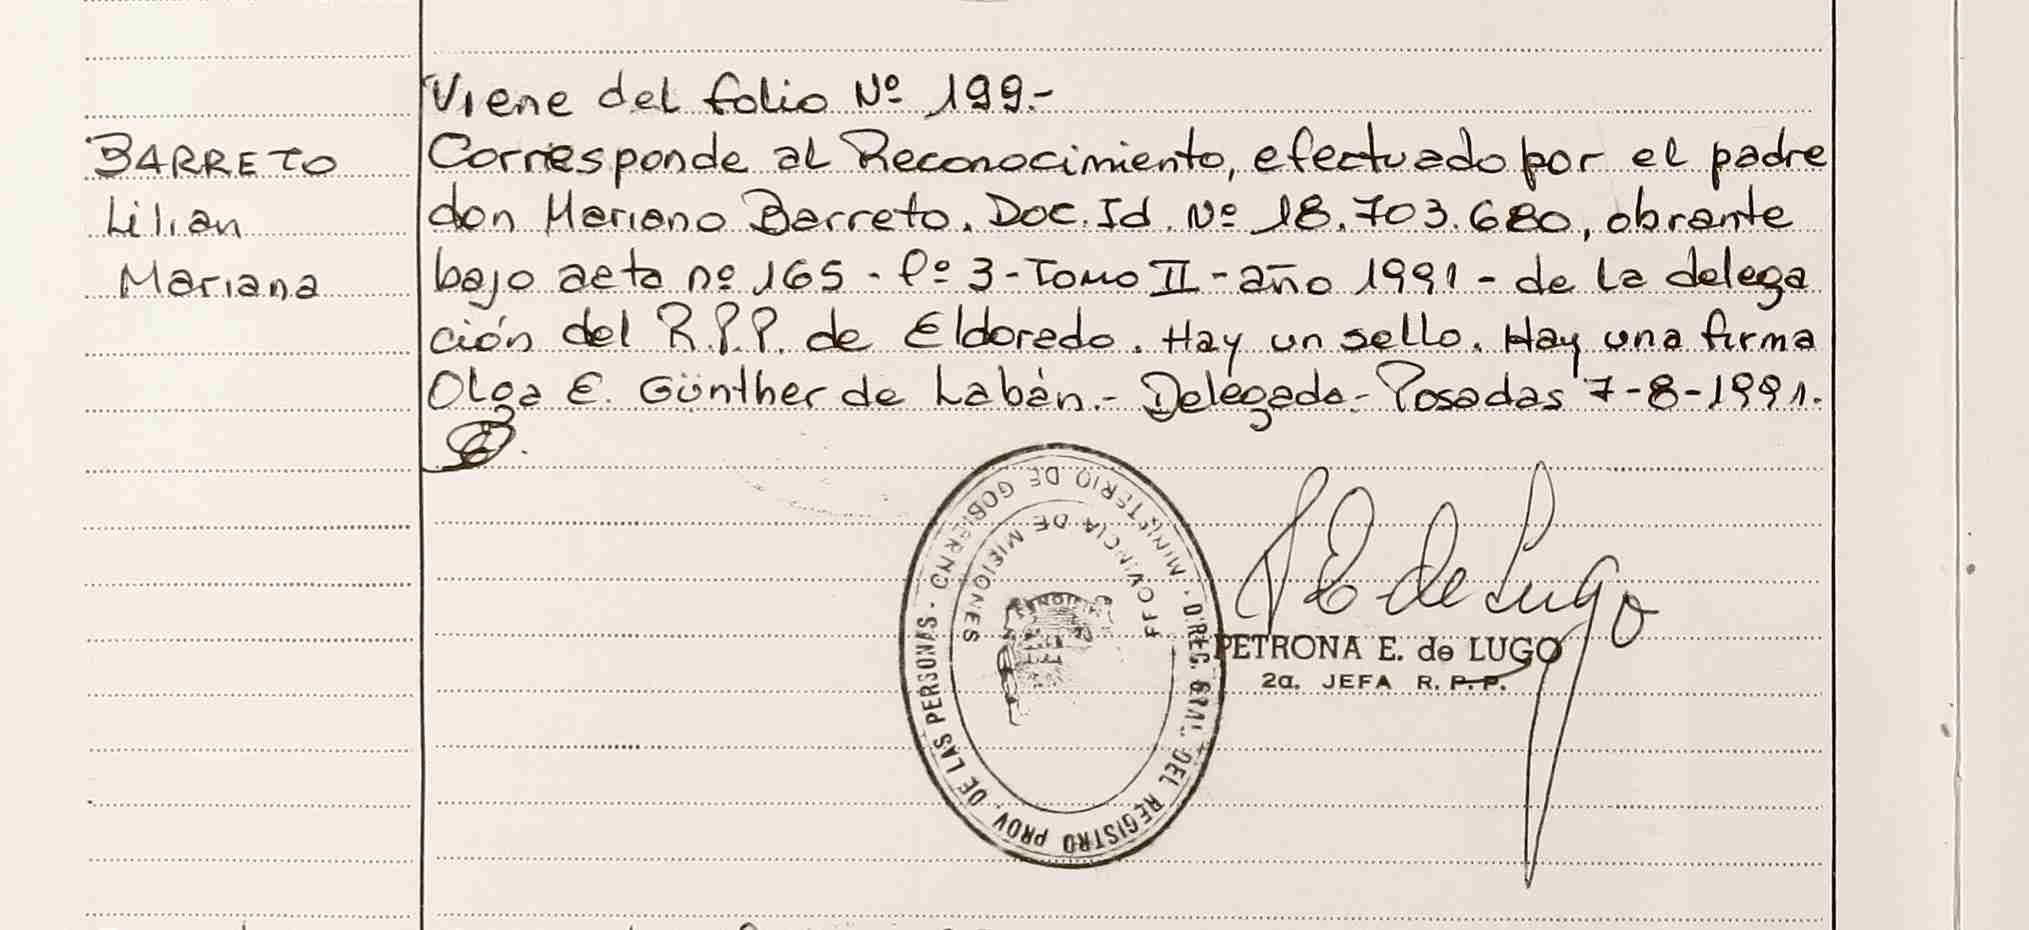 Viene del folio Nº 199.-
BARRETO
Lilian
Mariana
Corresponde al Reconocimiento, efectuado por el padre
don Mariano Barreto. Doc. Id. Nº 18.703.680, obrante
bajo acta nº 165 - fº 3 - Tomo II - año 1991 - de la delega
ción del R.P.P. de Eldorado. Hay un sello. Hay una firma
Olga E. Günther de Labán.- Delegada- Posadas 7-8-1991.
MINISTERIO DE GOBIERNO · DIREC. GRAL. DEL REGISTRO PROV. DE LAS PERSONAS ·
PROVINCIA DE MISIONES
P E de Lugo
PETRONA E. de LUGO
2a. JEFA R. P. P.